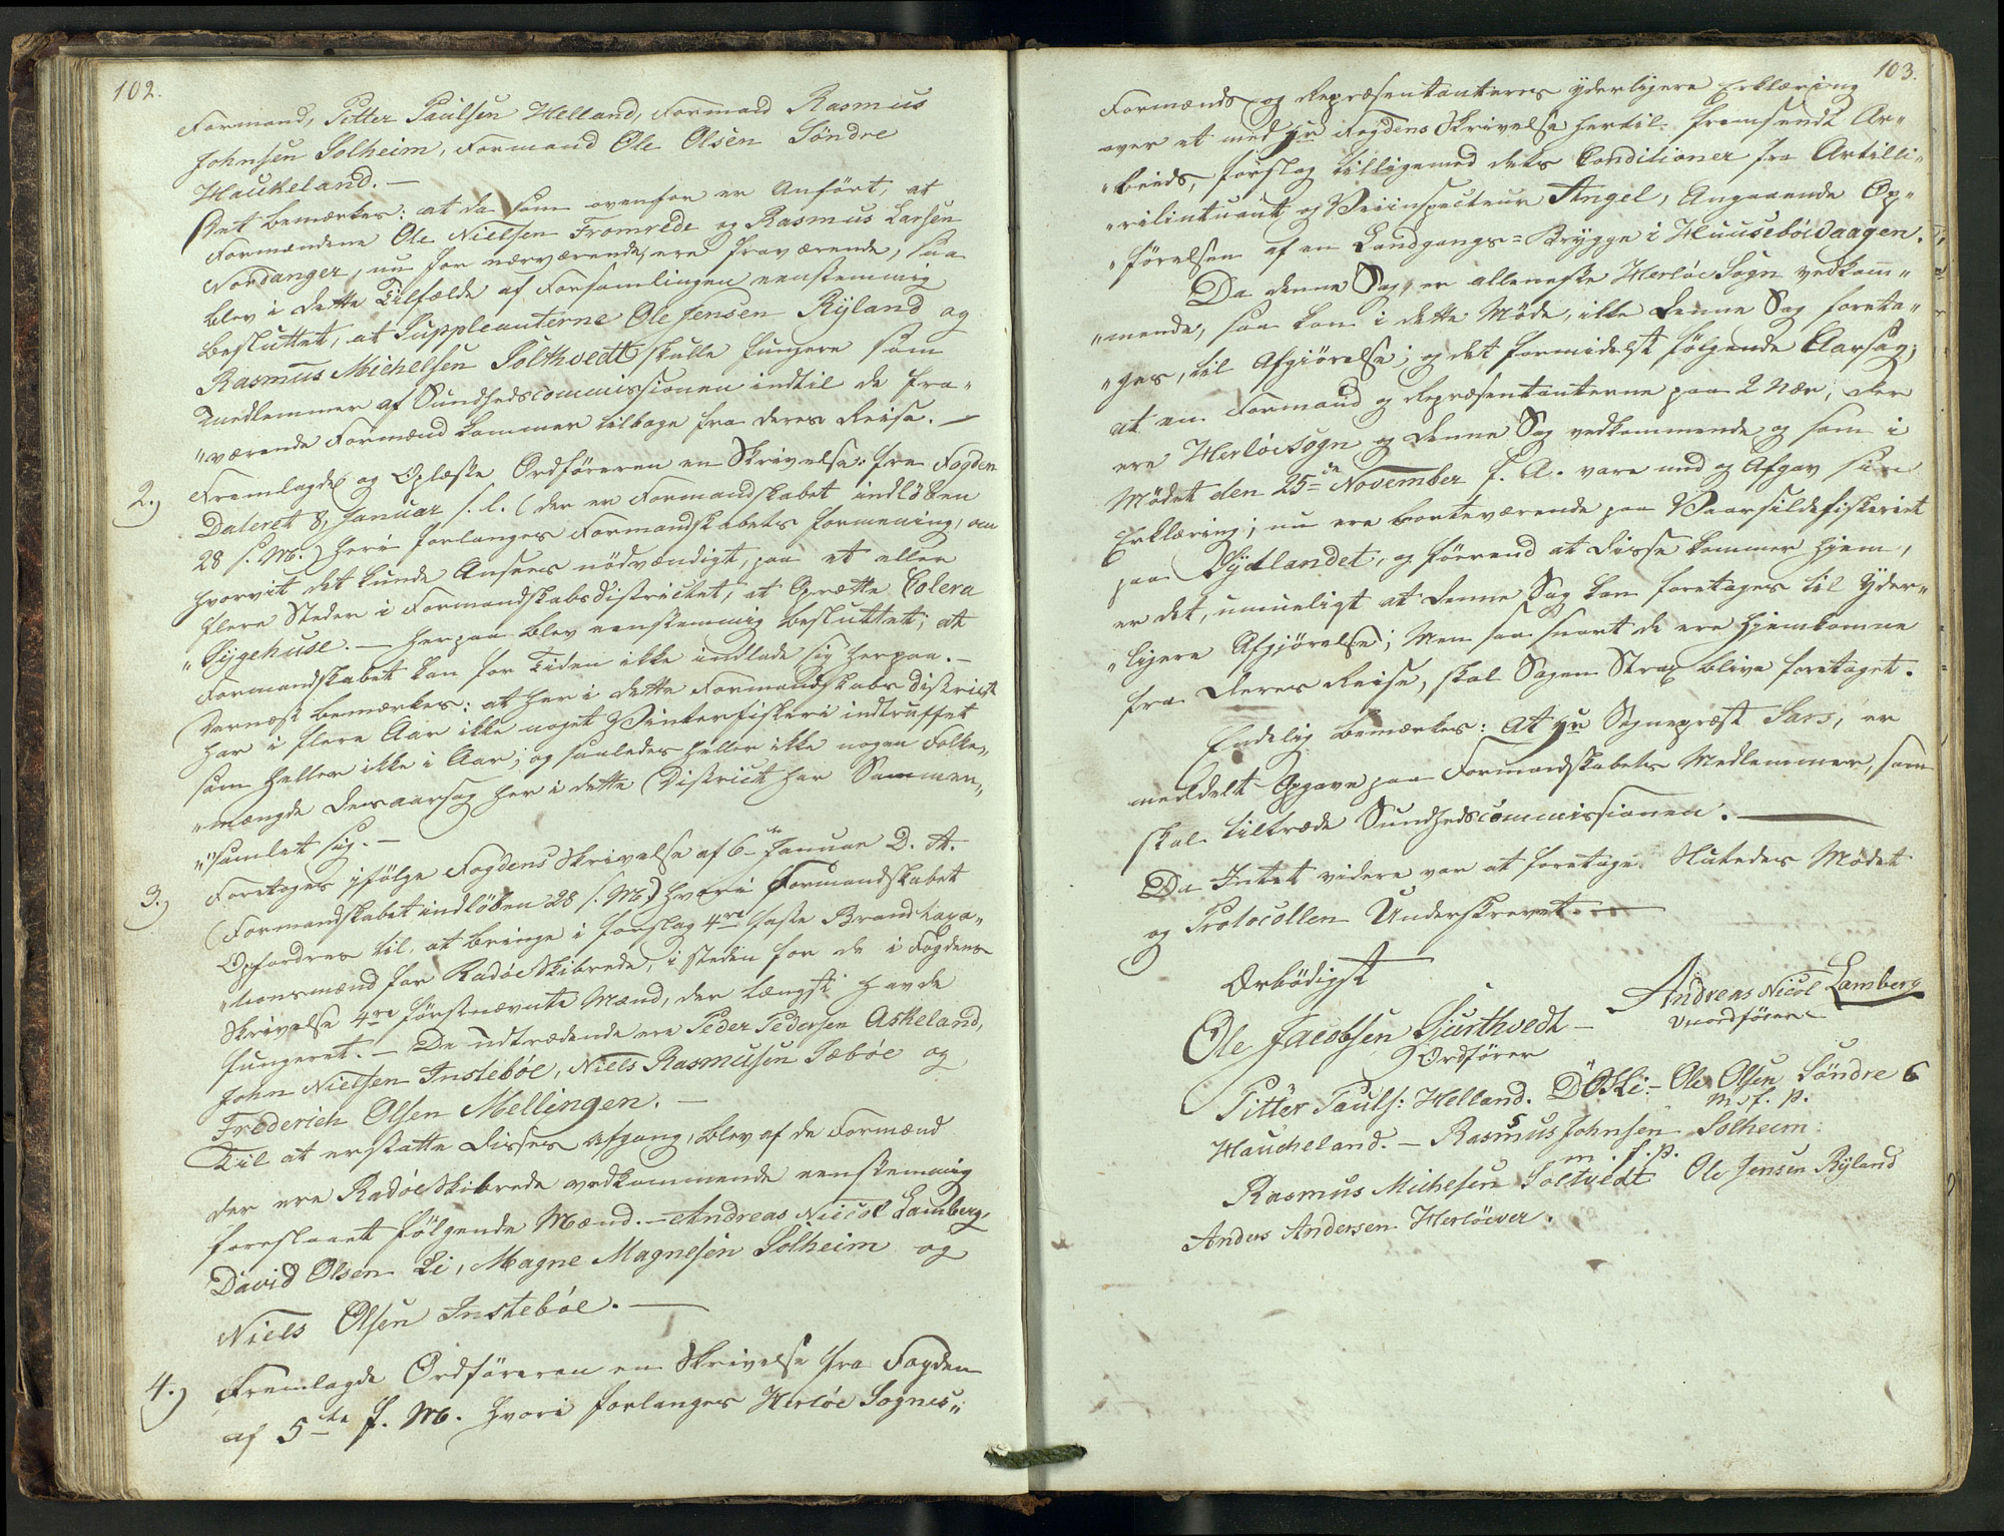 102.
Formand, Pitter Paulsen Helland, Formand Rasmus
Johnsen Solheim, Formand Ole Olsen Söndre
Haukeland. —
Det bemærkes: at da som ovenfor er Anfört, at
Formændene Ole Nielsen Fromrede og Rasmus Larsen
Nordanger, nu for nærværende, ere fraværende, saa
blev i dette Tilfælde af Forsamlingen eenstemmig
besluttet, at Suppleanterne Ole Jensen Ryland og
Rasmus Michelsen Solthvedt skulle fungere som
medlemmer af Sundhedscommissionen indtil de fra-
"værende Formænd kommer tilbage fra deres Reise. —
2.) Fremlagde og Oplæste Ordföreren en Skrivelse fra Fogden
Dateret 8 Januar s. l. (der er Formandskabet indlöben
28 s. M.) hvori forlanges Formandskabets formening, om
hvorvit det kunde Ansees nödvendigt, paa et eller
flere Steder i Formandskabsdistrictet, at Oprætte Colera
"Sygehuse. — herpaa blev eenstemmig besluttet; at
Formandskabet kan for Tiden ikke indlade sig herpaa. —
Dernæst bemærkes: at her i dette Formandskabs District
har i flere Aar ikke noget Vinterfiskeri indtruffet
som heller ikke i Aar; og saaledes heller ikke nogen Folke-
"mængde desaarsag her i dette District har Sammen-
"samlet sig. —
3.) Foretoges ifölge Fogdens Skrivelse af 6te Januar D. A.
(Formandskabet indlöben 28 s. M.) hvori Formandskabet
Opfordres til at bringe i forslag 4re faste Brandtaxa-
"tionsmænd for Radöe Skibrede, i steden for de i Fogdens
Skrivelse 4re förstnævnte Mænd, der længst havde
fungeret. — De udtrædende ere Peder Pedersen Askeland,
John Nielsen Insteböe, Niels Rasmusen Sæböe og
Frederich Olsen Mellingen. —
Til at erstatte disses Afgang, blev af de Formænd
der ere Radöe Skibrede vedkommende eenstemmig
foreslaaet fölgende Mænd. — Andreas Nicol Lamberg,
David Olsen Li, Magne Magnesen Solheim og
Niels Olsen Insteböe. —
4.) Fremlagde Ordföreren en Skrivelse fra Fogden
af 5te f. M. hvori forlanges Herlöe Sognes"
103.
Formænds og Repræsentanteres yderligere Erklæring
over et med Hr Fogdens Skrivelse hertil fremsendt Ar-
"beids, forslag tilligemed dets Conditioner fra Artille-
"rilieutnant og Veiinspecteur Angel, Angaaende Op-
"förelsen af en Landgangs-Brygge i Huuseböevaagen.
Da denne Sag, er alleneste Herlöe Sogn vedkom-
"mende, saa kan i dette Möde, ikke denne Sag foreta-
"ges, til Afgiörelse; og det formedelst fölgende Aarsag;
at en Formand og Repræsentanterne paa 2 Nær, der
ere Herlöe Sogn og denne Sag vedkommende og som i
Mödet den 25de November f. A. vare med og Afgav sin
Erklæring; nu ere borteværende paa Vaarsildefiskeriet
paa Sydlandet, og förend at disse kommer hjem,
er det, umueligt at denne Sag kan foretages til Yder-
"ligere Afgjörelse; Men saa snart de ere hjemkomne
fra deres Reise, skal Sagen Strax blive foretaget.
Endelig bemærkes: At Hr Sognepræst Sars, er
meddelt Opgave paa Formandskabets Medlemmer, som
skal tiltræde Sundhedscommissionen. —
Da Intet videre var at foretage. Sluttedes Mödet
og Protocollen Underskrevet. —
Ærbödigst
Ole Jacobsen Gjurthvedt — Andreas Nicol Lamberg
Ordförer Viceordförer
Pitter Pauls: Helland. D O Li. — Ole Olsen Söndre
Haucheland. — m. f. p. Rasmus Johnsen Solheim
m. f. p.
Rasmus Michelsen Soltvedt Ole Jensen Ryland
Anders Andersen Herlöever.